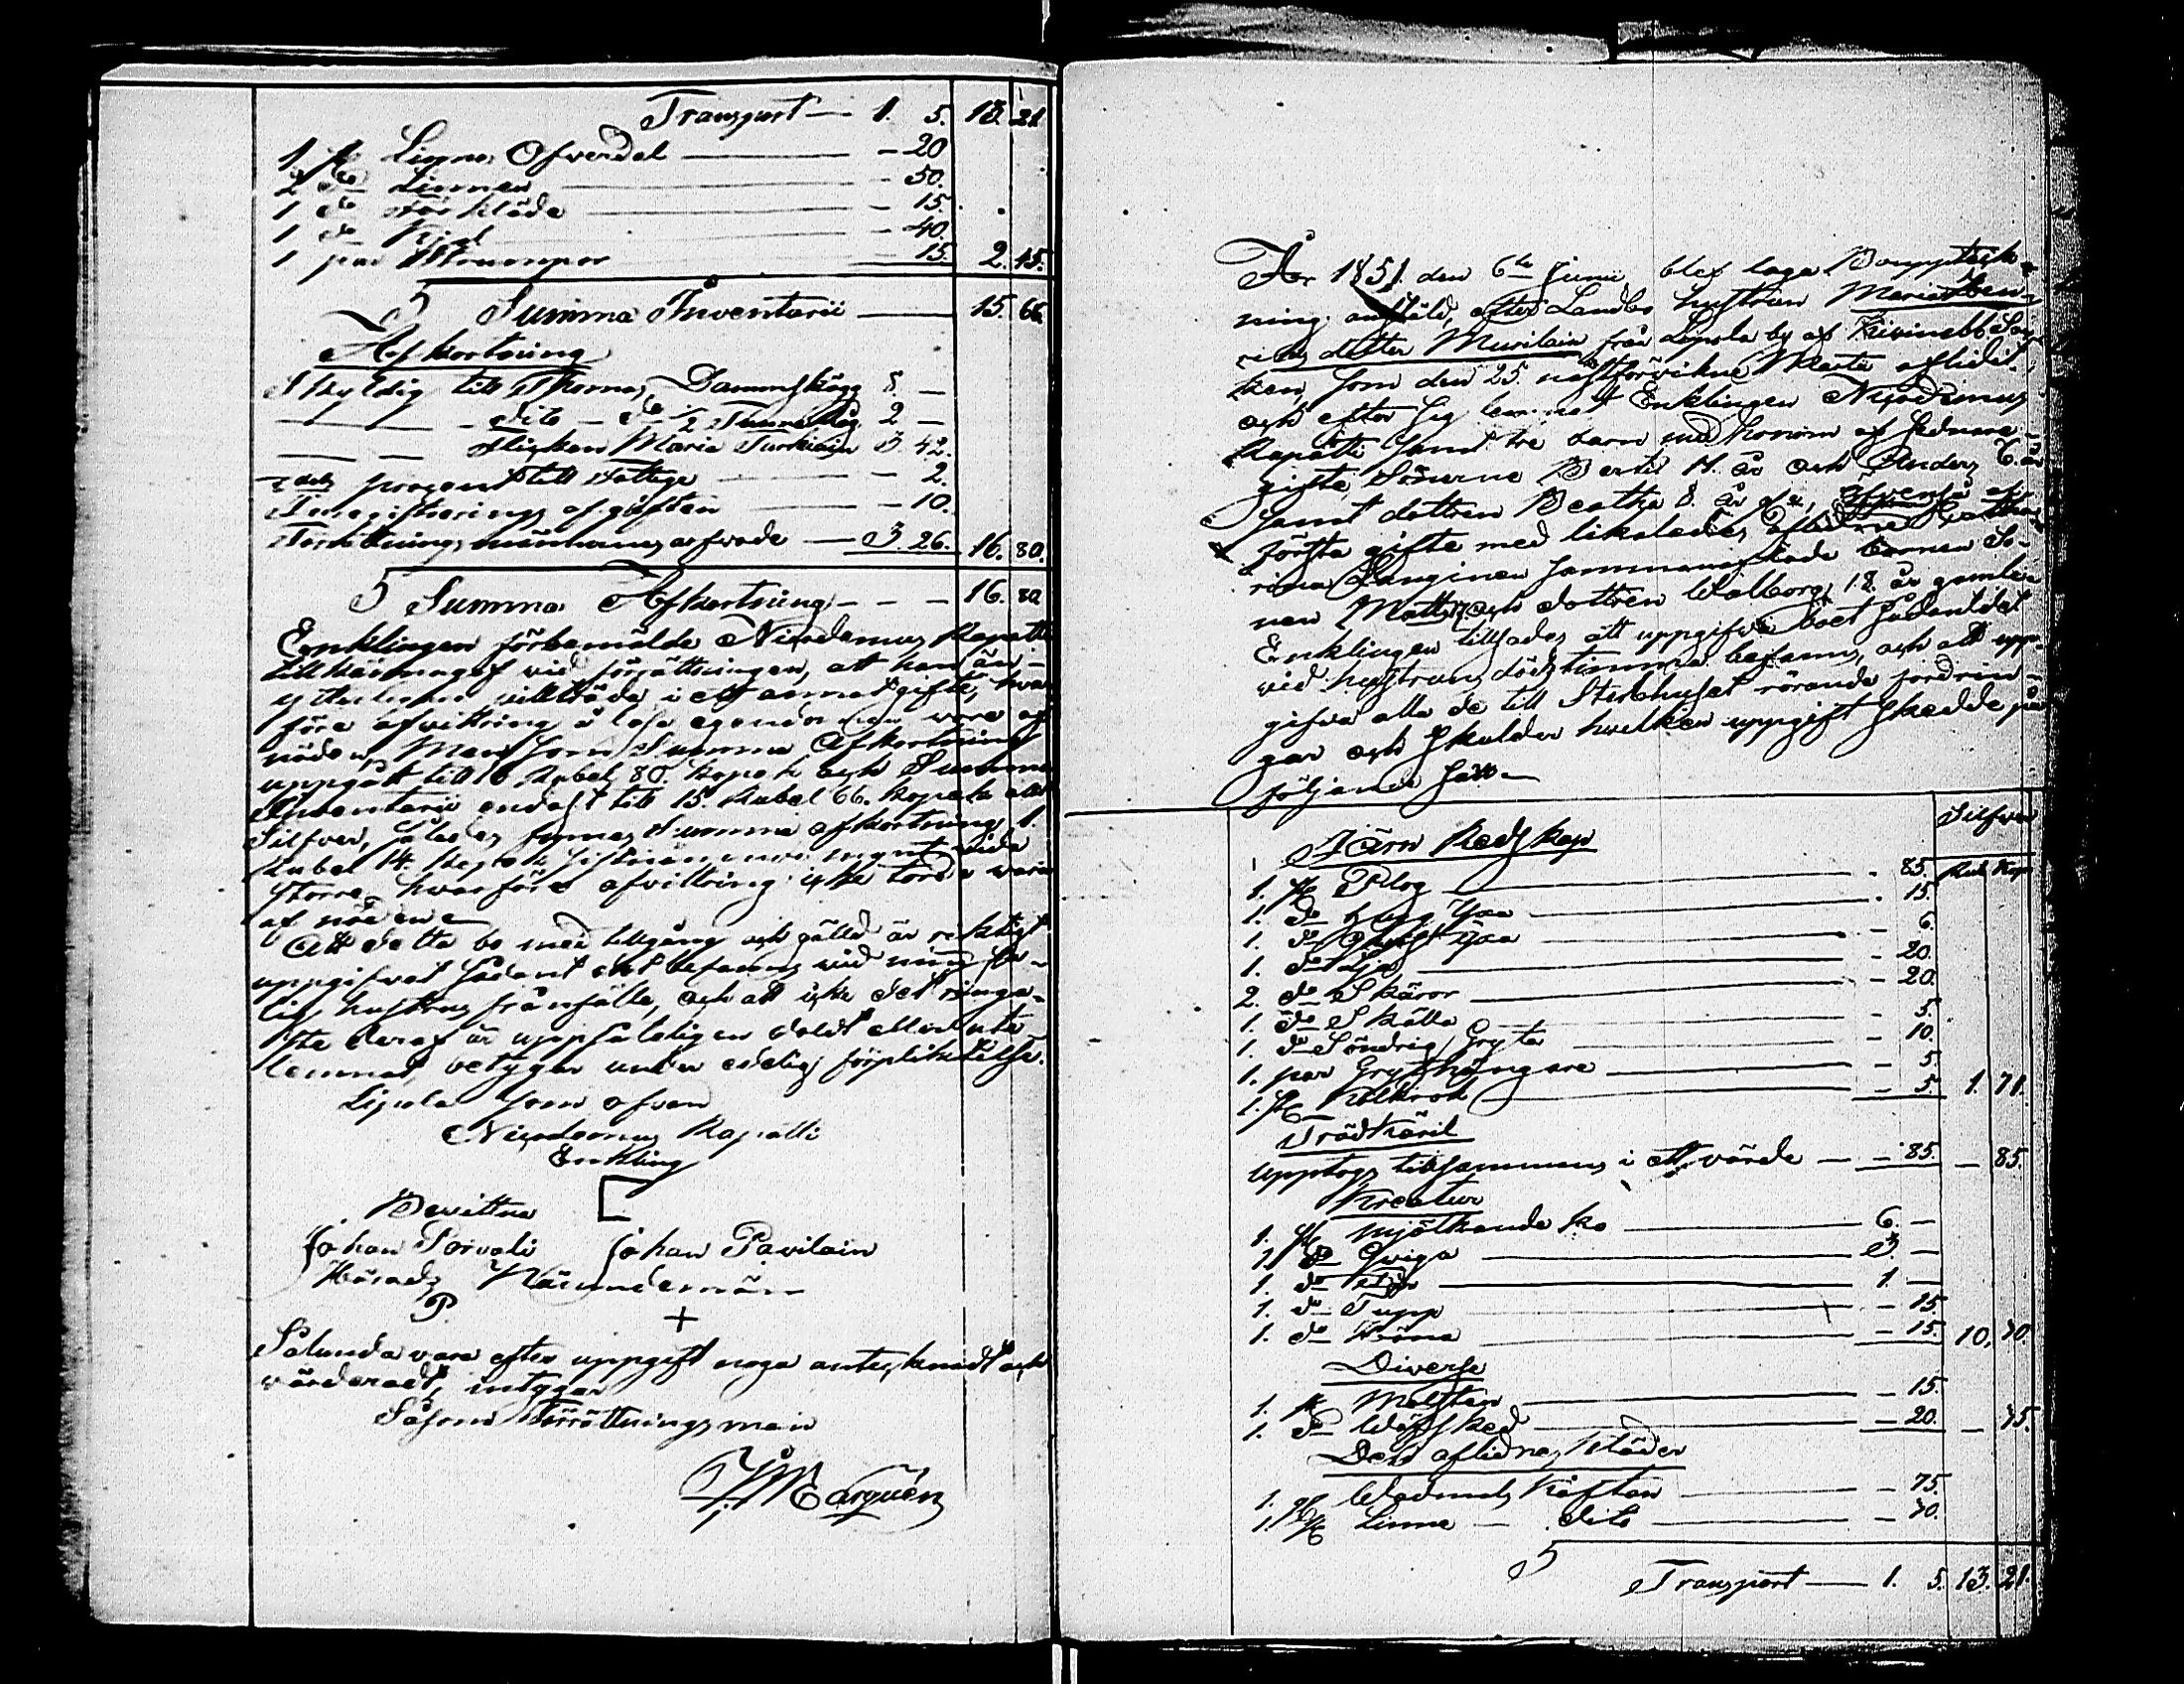 Transport — 1. 5. 13. 21
1 st Linne Ofverdel — 20
2 do Linnen — 50.
1 do förkläde — 15.
1 do Kjol — 40.
1 par Strumpor — 15. 2. 45.
Summa Inventarii — 15. 66.
Afkortning
Skyldig till Thomas Dammskägg 8 —
dito do 1/2 Tunna Råg 2 —
flickan Maria Turkiain 3. 42.
procent till fattige — 2.
Inregistrerings afgiften — 10.
Förrättningsmännernas arfvode — 3. 26. 16. 80.
Summa Afkortning — 16. 80
Enklingen förbemälde Nicodemus Rapatti
tillkännagaf vid förrättningen, att han än-
ytterligare tillträde i ett annat gifte, hvar
före afvittring å lösa egendomen vore af
nöden, Men som Summa Afkortning
uppgått till 16 Rubel 80. Kopek och Summa
Inventarii endast till 15. Rubel 66. Kopek allt
Silfver, således finnes Summa afkortning 1.
Rubel 14. Kopek sistnämnde mynt vida
större, hvarföre afvittring icke torde vara
af nöden
Att detta bo med tillgång och gäld är riktigt
uppgifvet sådant det befanns vid min sa-
lig hustrus frånfälle, och att icke det ringa-
ste deraf är uppsåteligen doldt eller ute-
lemnat, betygar under edelig förpliktelse.
Lipola som ofvan
Nicodemus Rapatti
Enkling
Bevittna
Johan Torvali Johan Pavilain
Härads Nämndemän
P. +
Sålunda vara efter uppgift noga antecknadt och
värderadt, intygar
Såsom Förrättningsman
År 1851. den 6te Junii, blef laga Bouppteck-
ning anställd, efter Landbo hustrun Maria Hen-
riks dotter Murilain från Lipola by af Kivinebb Soc-
ken, som den 25. nästförvikne Martii aflidit.
och efter sig lemnat Enklingen Nicodemus
Rapatti samt tre barn med honom af sednare
gifte, Sönerne Bertil 11. år och Anders 6. år
samt dottren Beatha 8. år g:a, äfvenså af
första gifte med likaledes aflidne
Langinen sammanaflade barnen So-
nen Matts och dottren Walborg, 18. år gamla
Enklingen tillsades att uppgifva boet sådant det
vid hustruns dödstimma befanns, och att upp-
gifva alla de till Sterbhuset rörande fordrin-
gar och skulder hvilken uppgift skedde på
följande sätt.—
Silfver
Rub Kop
Järn Redskap
1. st Plog — 85.
1. do Hugg Yxa — 15.
1. do Yxa — 6.
1. do Lja — 20.
2. do Skäror — 20.
1. do Skälla — 5.
1. do Söndrig Gryta — 10.
1. par Grythängare — 5
1. st — 5. 1. 71.
Trädkäril
upptogs tillsammans i ett värde — 85. — 85.
Kreatur
1. st mjölkande Ko — 6. —
1. do Qviga — 3. —
1. do — 1. —
1. do Tupp — 15.
1. do Höna — 15. 10. 30.
Diverse
1. st — 15.
1. do Wäfsked — 20. — 35.
Den aflidnes Kläder
1. st Wadmals Kaftan — 75.
1. st Linne — dito — 30.
Transport — 1. 5. 13. 21.